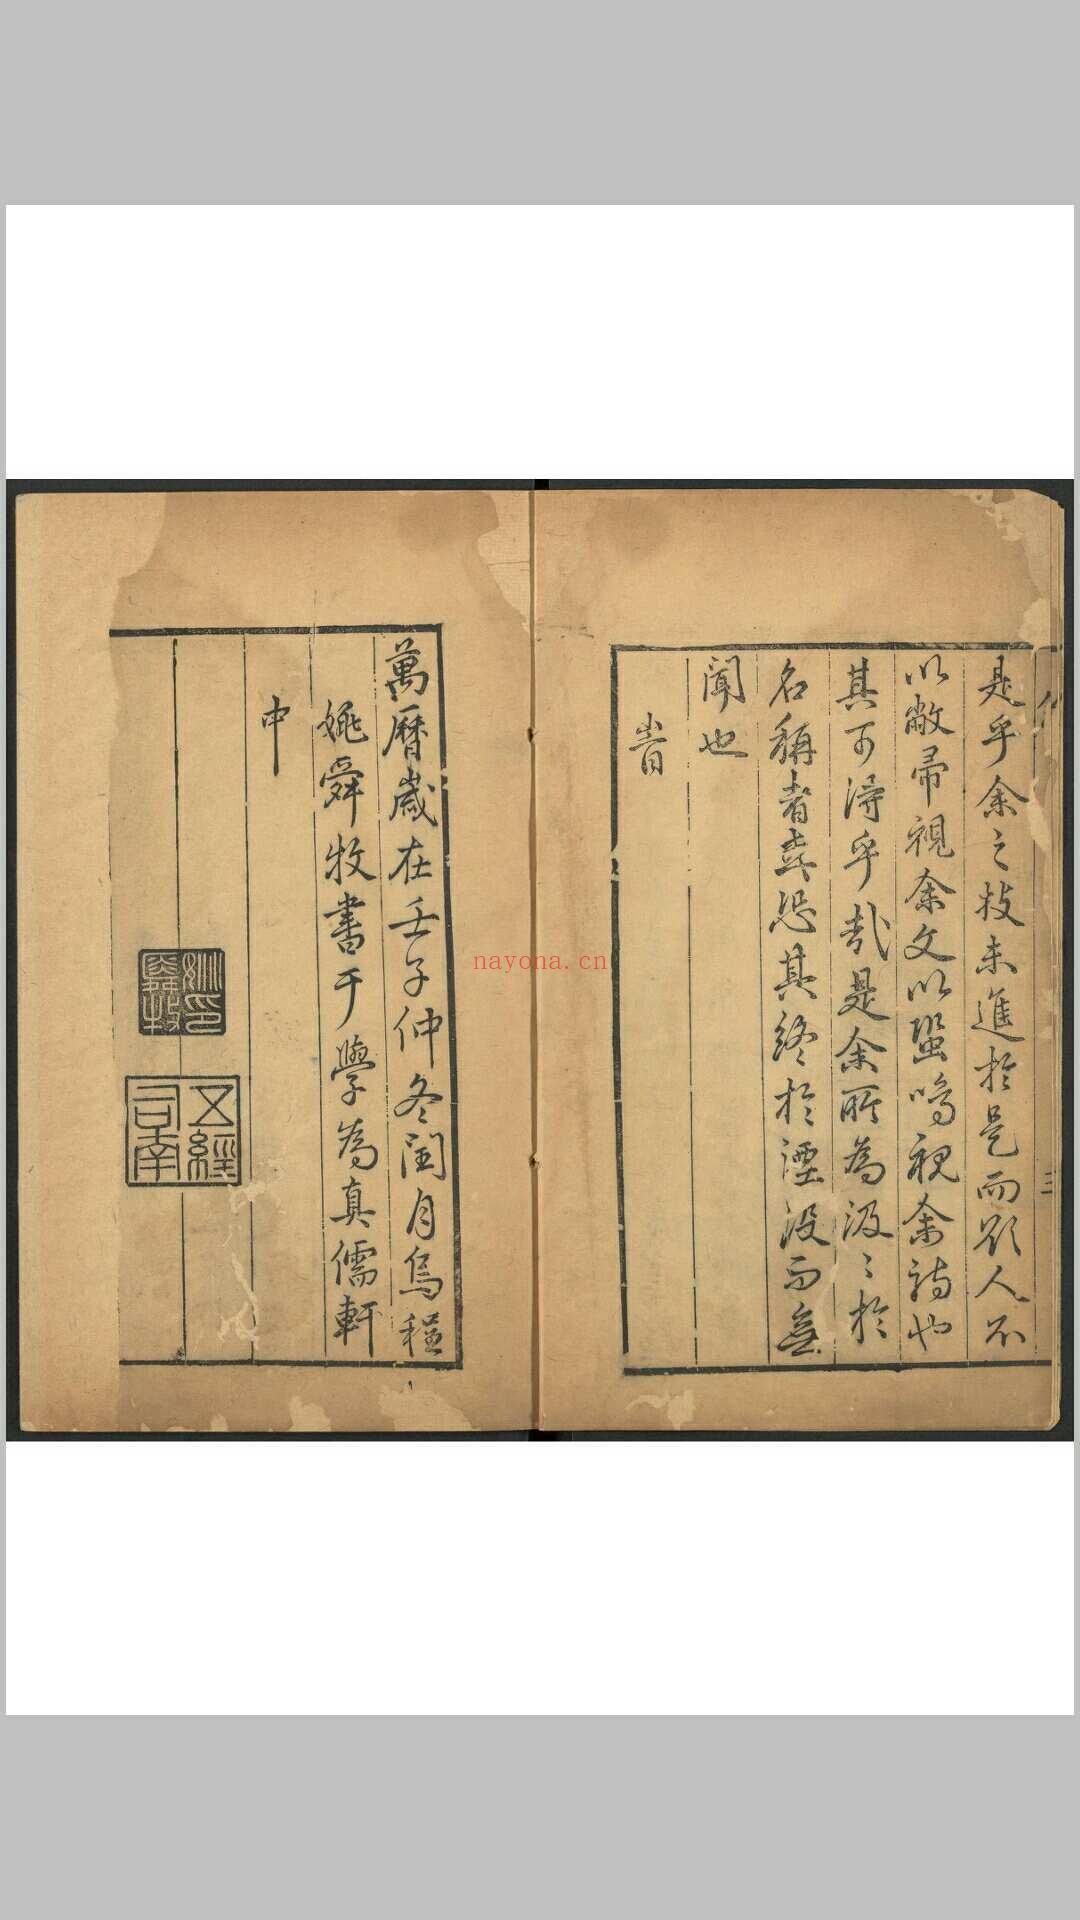 是乎余之技未進於是而欲人不
以敝帚視余文以蛩鳴視余詩也
其可得乎哉是余所為汲〻於
名稱者恐其終於湮没而無
聞也
旹
三
萬曆歲在壬子仲冬閏月烏程
姚舜牧書于學為真儒軒
中
姚印舜牧
五經司南
nayona.cn